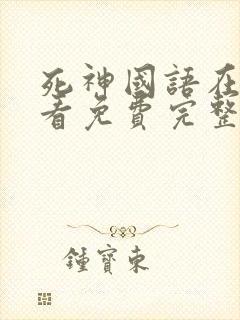 死神國語在
看免費完整
鍾寶東